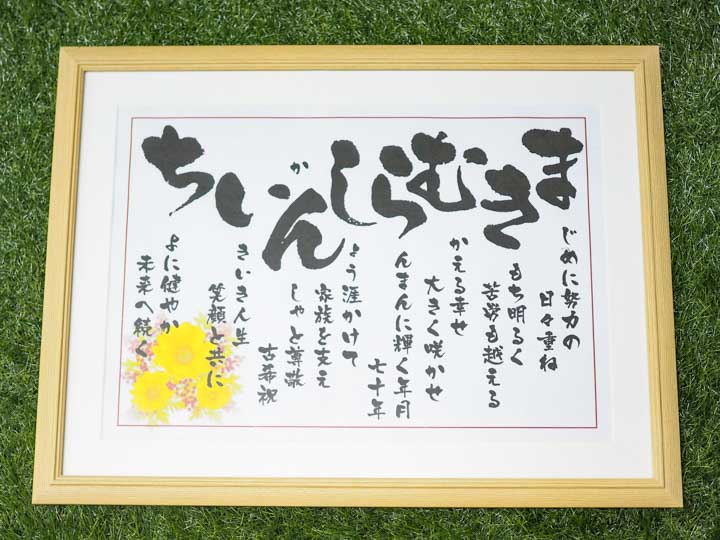 まきむらしかんいち
じめに努力の
日々重ね
もち明るく
苦労も越える
かえる幸せ
大きく咲かせ
んまんに輝く年月
七十年
ょう涯かけて
家族を支え
しゃと尊敬
古希祝
きいき人生
笑顔と共に
よに健やか
未来へ続く